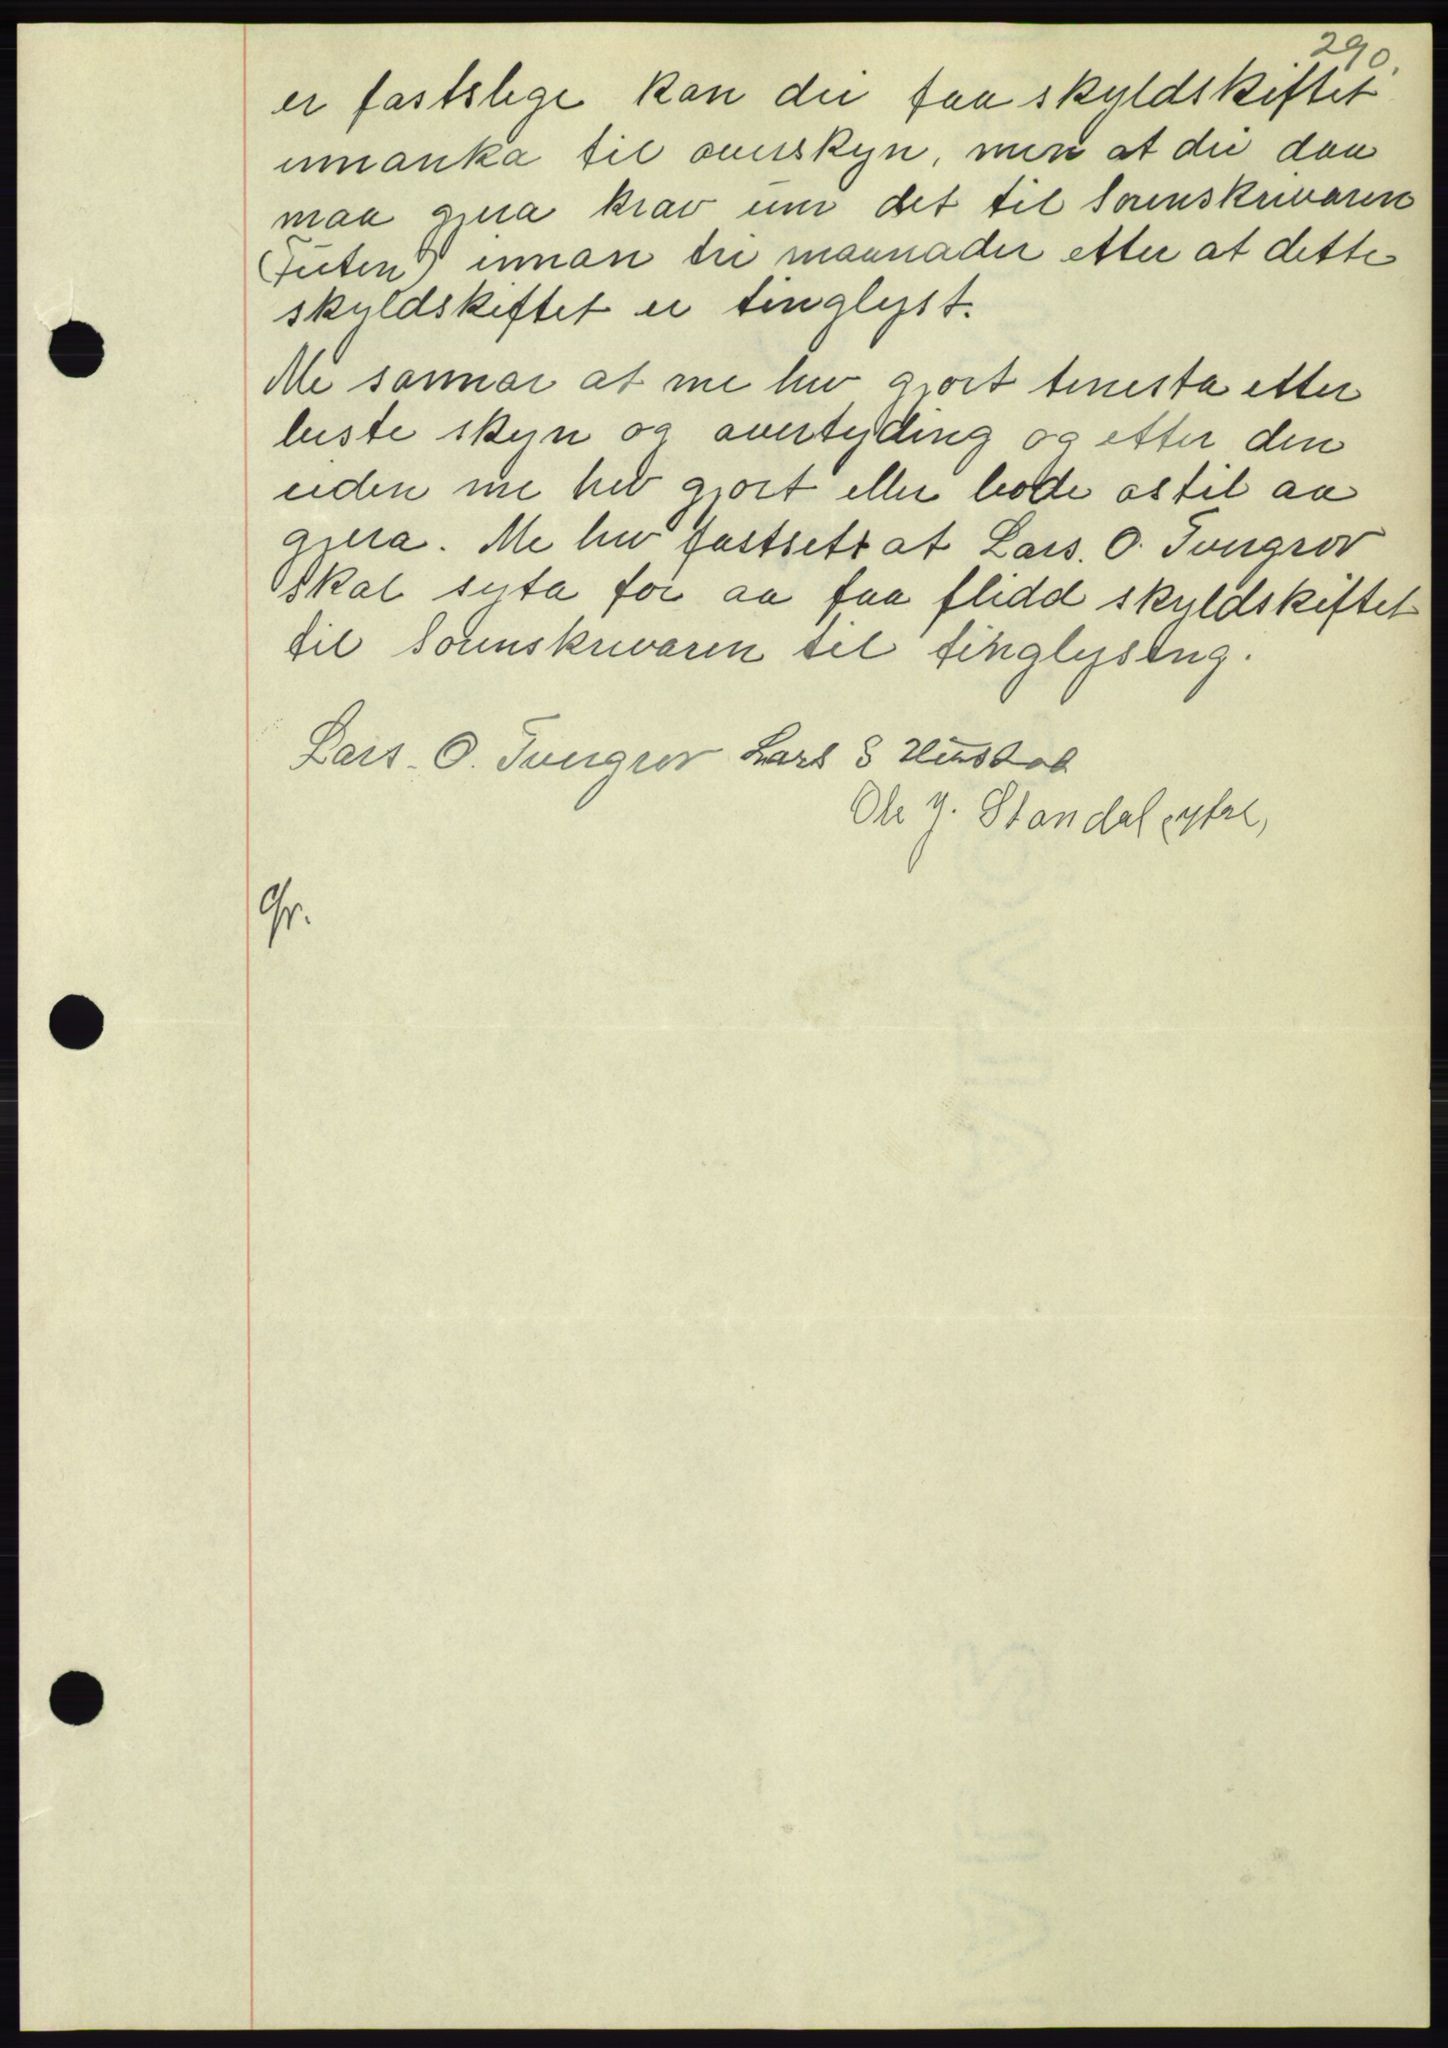 290.
er fastslege kan dei faa skyldskiftet
innanka til overskyn, men at dei daa
maa gjera krav um det til Sorenskrivaren
(Futen) innan tri maanader etter at dette
skyldskiftet er tinglyst.
Me sannar at me hev gjort tenesta etter
beste skyn og overtyding og etter den
eiden me hev gjort eller bode os til aa
gjera. Me hev fastsett at Lars. O. Tvergrov
skal syta for aa faa flidd skyldskiftet
til Sorenskrivaren til tinglysing.
Lars. O. Tvergrov Lars S Hustad
Ole J. Standal (ytre)
Gr.